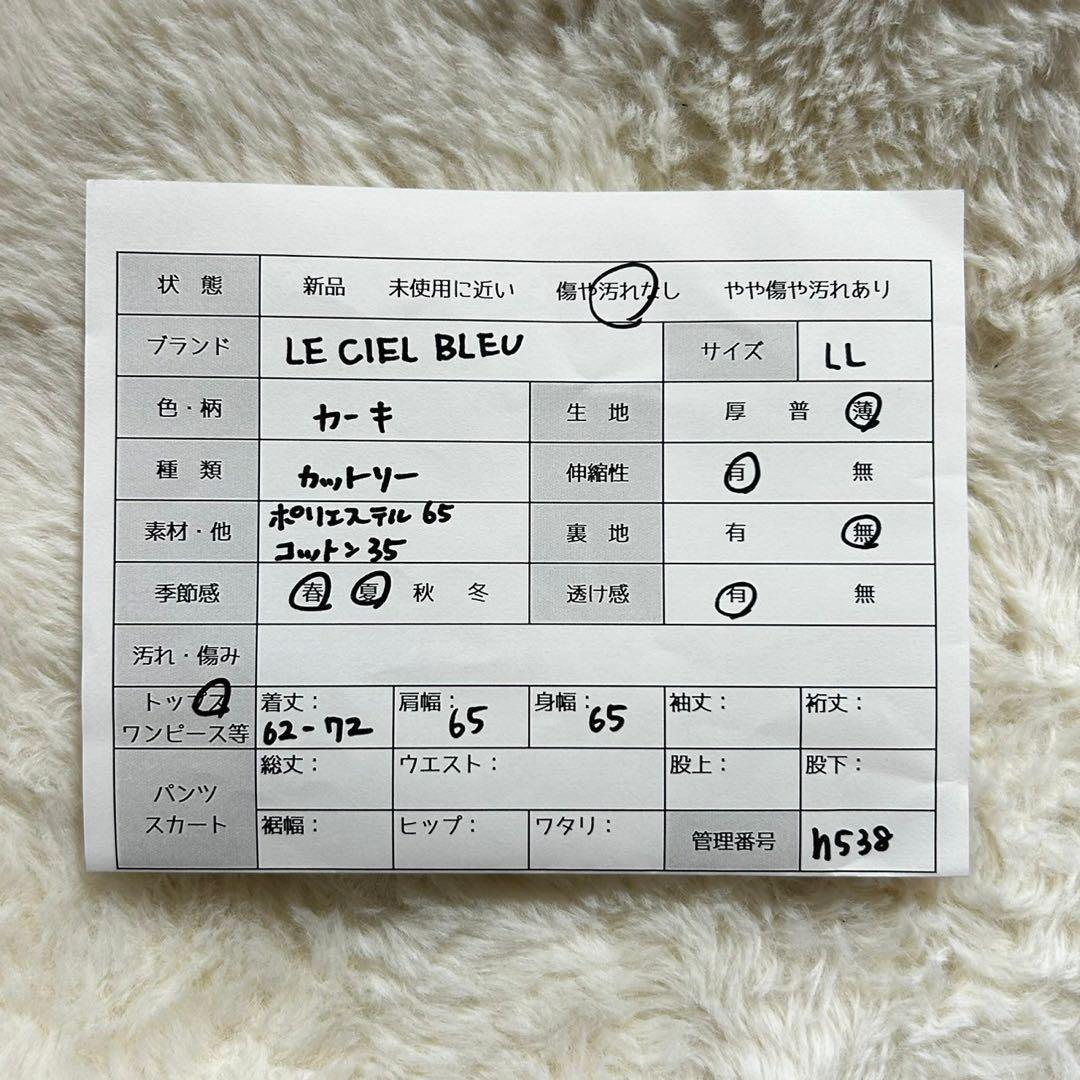 状 態 新品 未使用に近い 傷や汚れなし やや傷や汚れあり
ブランド LE CIEL BLEU サイズ LL
色・柄 カーキ 生 地 厚 普 薄
種 類 カットソー 伸縮性 有 無
素材・他 ポリエステル 65
コットン 35
裏 地 有 無
季節感 春 夏 秋 冬 透け感 有 無
汚れ・傷み
トップス
ワンピース等
着丈： 肩幅： 身幅： 袖丈： 裄丈：
62-72 65 65
パンツ
スカート
総丈： ウエスト： 股上： 股下：
裾幅： ヒップ： ワタリ： 管理番号 n538